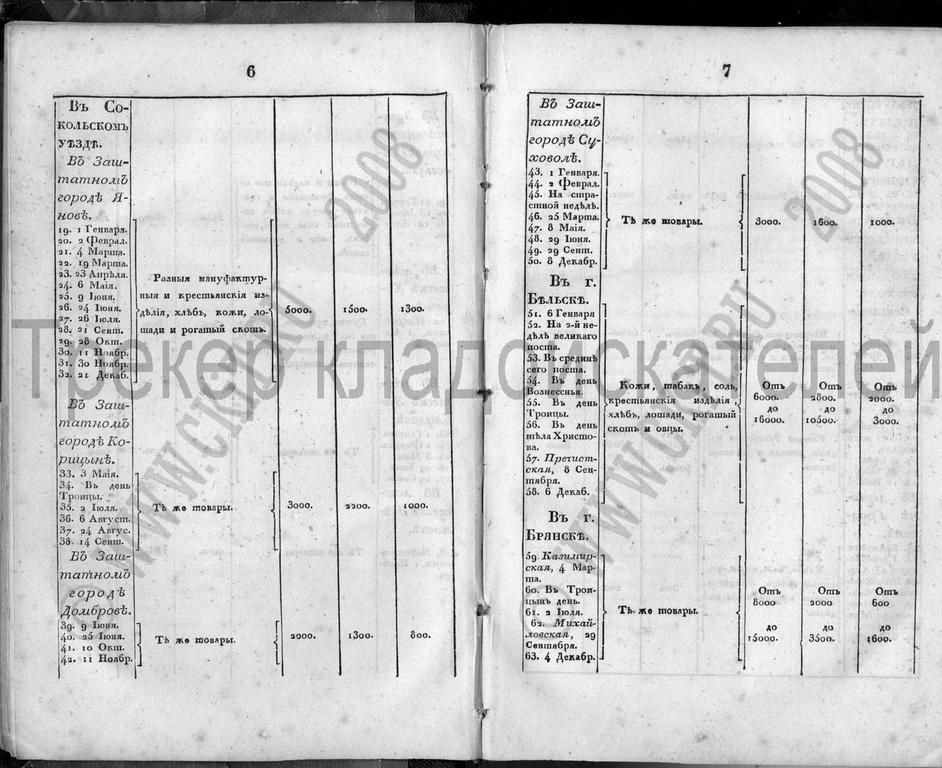 6
Въ Со-
кольскомъ
уѣздѣ.
Въ Заш-
татномъ
городѣ Я-
новѣ.
19. 1 Генваря.
20. 2 Феврал.
21. 4 Марта.
22. 19 Марта.
23. 23 Апрѣля.
24. 6 Маія.
25. 9 Іюня.
26. 24 Іюня.
27. 26 Іюля.
28. 21 Сент.
29. 28 Окт.
30. 11 Ноябр.
31. 30 Ноябр.
32. 21 Декаб.
Разныя мануфактур-
ныя и крестьянскія из-
дѣлія, хлѣбъ, кожи, ло-
шади и рогатый скотъ.
5000. 1500. 1300.
Въ Заш-
татномъ
городѣ Ко-
рицынѣ.
33. 3 Маія.
34. Въ день
Троицы.
35. 2 Іюля.
36. 6 Август.
37. 24 Авгус.
38. 14 Сент.
Тѣ же товары.
3000. 2200. 1000.
Въ Заш-
татномъ
городѣ
Домбровѣ.
39. 9 Іюня.
40. 25 Іюня.
41. 10 Окт.
42. 11 Ноябр.
Тѣ же товары.
2000. 1300. 800.
7
Въ Заш-
татномъ
городѣ Су-
ховолѣ.
43. 1 Генваря.
44. 2 Феврал.
45. На стра-
стной недѣлѣ.
46. 25 Марта.
47. 8 Маія.
48. 29 Іюня.
49. 29 Сент.
50. 8 Декабр.
Тѣ же товары.
3000. 1600. 1000.
Въ г.
Бѣльскѣ.
51. 6 Генваря
52. На 2-й не-
дѣлѣ великаго
поста.
53. Въ срединѣ
сего поста.
54. Въ день
Вознесенья.
55. Въ день
Троицы.
56. Въ день
тѣла Христо-
ва.
57. Пречист-
ская, 8 Сен-
тября.
58. 6 Декаб.
Кожи, табакъ, соль,
крестьянскія издѣлія,
хлѣбъ, лошади, рогатый
скотъ и овцы.
Отъ Отъ Отъ
6000. 2800. 2000.
до до до
16000. 10500. 3000.
Въ г.
Брянскѣ.
59. Казимир-
ская, 4 Мар-
та.
60. Въ Трои-
цынъ день.
61. 2 Іюля.
62. Михай-
ловская, 29
Сентября.
63. 4 Декабр.
Тѣ же товары.
Отъ Отъ Отъ
8000 2000 600
до до до
15000. 3500. 1600.
Трекер кладоискателей
© WWW.CKB.RU 2008
© WWW.CKB.RU 2008